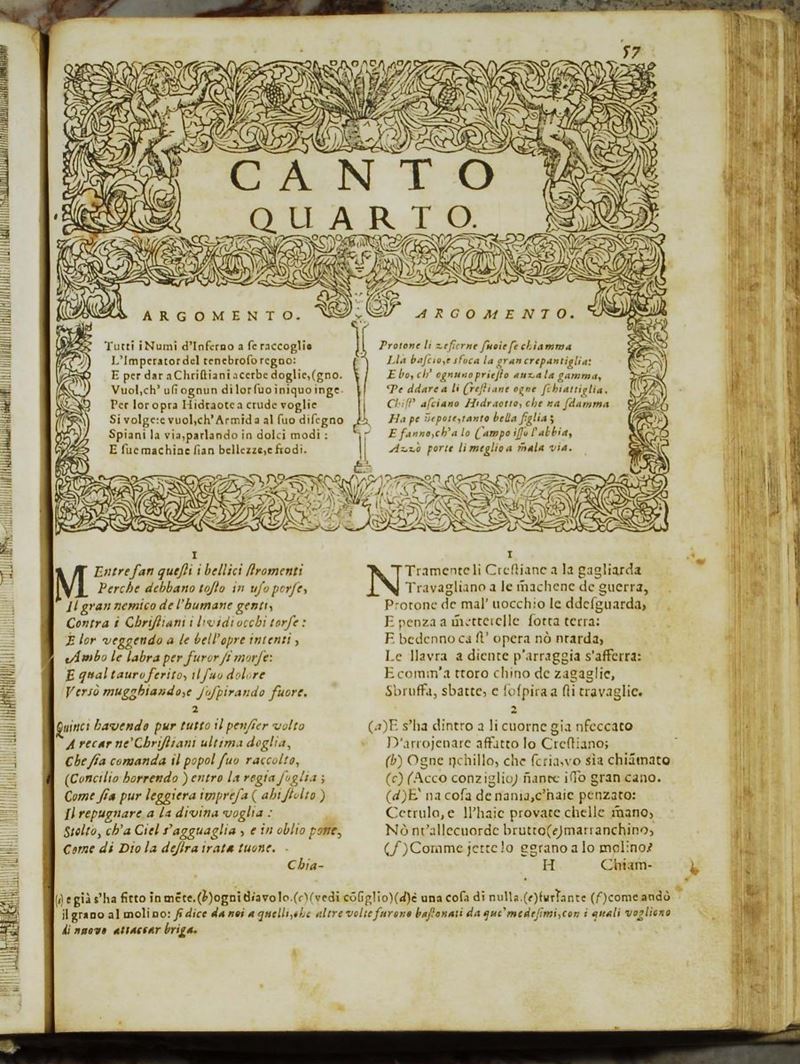 57
CANTO
QUARTO.
ARGOMENTO.
Tutti i Numi d'Inferno a se raccoglie
L'Imperator del tenebroso regno:
E per dar a Christiani acerbe doglie, (gno.
Vuol, ch' usi ognun di lor suo iniquo inge-
Per lor opra Hidraote a crude voglie
Si volge: e vuol, ch' Armida al suo disegno
Spiani la via, parlando in dolci modi:
E sue machine sian bellezze, e frodi.
ARGOMENTO.
Protone li zefierne suoie se chiamma
Lla bascio, e sfoca la gran crepantiglia:
E bo, ch' ognuno priesto auza la gamma,
Pe ddare a li Crestiane ogne schiattiglia.
Chiss' asciano Hidraotto, che na sdamma
Ha pe nepote, tanto bella figlia;
E fanno, ch'a lo Campo isso l'abbia,
Azzò porte li meglio a m̃ala via.
1
MEntre fan questi i bellici stromenti
Perche debbano tosto in uso porse,
Il gran nemico de l'humane genti,
Contra i Christiani i lividi occhi torse:
E lor veggendo a le bell'opre intenti,
Ambo le labra per furor si morse:
E qual tauro ferito, il suo dolore
Versò mugghiando, e sospirando fuore.
2
Quinci havendo pur tutto il pensier volto
A recar ne' Christiani ultima doglia,
Che sia comanda il popol suo raccolto,
(Concilio horrendo) entro la regia soglia;
Come sia pur leggiera impresa (ahi stolto)
Il repugnare a la divina voglia:
Stolto, ch'a Ciel s'agguaglia, e in oblio pone,
Come di Dio la destra irata tuone.
Chia-
1
NTramente li Crestiane a la gagliarda
Travagliano a le m̃achene de guerra,
Protone de mal' uocchio le ddesguarda,
E penza a m̃ettetelle sotta terra:
E bedenno ca st' opera nò ntarda,
Le llavra a diente p'arraggia s'afferra:
E comm'a ttoro chino de zagaglie,
Sbruffa, sbatte, e sospira a sti travaglie.
2
(a)E s'ha dintro a li cuorne gia nfeccato
D'arrojenare affatto lo Crestiano;
(b) Ogne nchillo, che scria, vo sia chiãmato
(c) (Acco conziglio) ñante isso gran cano.
(d)E' na cosa de nania, c'haie penzato:
Cetrulo, e ll'haie provate chelle m̃ano,
Nò nt'allecuorde brutto(e)marranchino,
(f)Comme jette lo ggrano a lo molino?
H
Chiam-
(a) e già s'ha fitto in mẽte. (b) ogni diavolo. (c) (vedi cõsiglio) (d) è una cosa di nulla. (e) furfante (f) come andò
il grano al molino: si dice da noi a quelli, che altre volte furono bastonati da que' medesimi, con i quali vogliono
di nuovo attaccar briga.